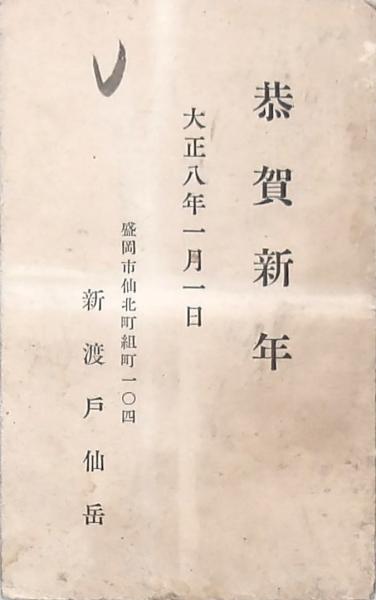 恭賀新年
大正八年一月一日
盛岡市仙北町組町一〇四
新渡戸仙岳